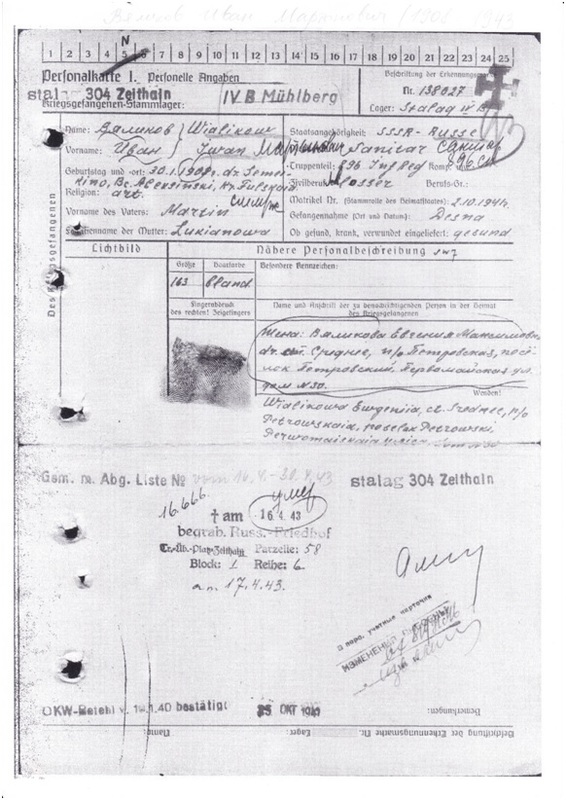 Вяликов Иван Мартинович (1908 - 1943
N
1 2 3 4 5 6 7 8 9 10 11 12 13 14 15 16 17 18 19 20 21 22 23 24 25
Personalkarte I. Personelle Angaben
stalag 304 Zeithain
IV B Mühlberg
Kriegsgefangenen-Stammlager:
Beschriftung der Erkennungsmarke
Nr. 138027
Lager: Stalag IV B
Des Kriegsgefangenen
Name: Вяликов Wialikow
Vorname: Иван Iwan
Geburtstag und -ort: 30.1.1908
Religion: ort.
Vorname des Vaters: Martin
Familienname der Mutter: Lukianowa
Staatsangehörigkeit: SSSR - Russe
Sanitar
Truppenteil: 896 Inf Reg Komp.
Zivilberuf: Berufs-Gr.:
Matrikel Nr. (Stammrolle des Heimatstaates) 2.10.1941
Gefangennahme (Ort und Datum): Desna
Ob gesund, krank, verwundet eingeliefert: gesund
Lichtbild
Nähere Personalbeschreibung
Größe Haarfarbe Besondere Kennzeichen:
163 blond
Fingerabdruck
des rechten! Zeigefingers
Name und Anschrift der zu benachrichtigenden Person in der Heimat
des Kriegsgefangenen
Жена: Вяликова Евгения Максимовна
ст. Среднее, п/о Петровская, посё-
лок Петровский, Первомайская ул.
дом №30.
Wenden!
Wialikowa Ewgeniia, st. Srednee, p/o
Petrowskaia, poselok Petrowski,
Perwomaiskaia
Gem. m. Abg. Liste № vom 16.4.-30.4.43
stalag 304 Zeithain
16.666
умер
† am 16.4.43
begrab. Russ.-Friedhof
Tr.-Üb.-Platz Zeithain Parzelle: 58
Block: 1 Reihe: 6
am 17.4.43.
В перв. учетные карточки
ИЗМЕНЕНИЯ ВНЕСЕНЫ
OKW-Befehl v. 19.1.40 bestätigt
25 ОКТ 1941
Bemerkungen:
Beschriftung der Erkennungsmarke Nr. Lager: Name: